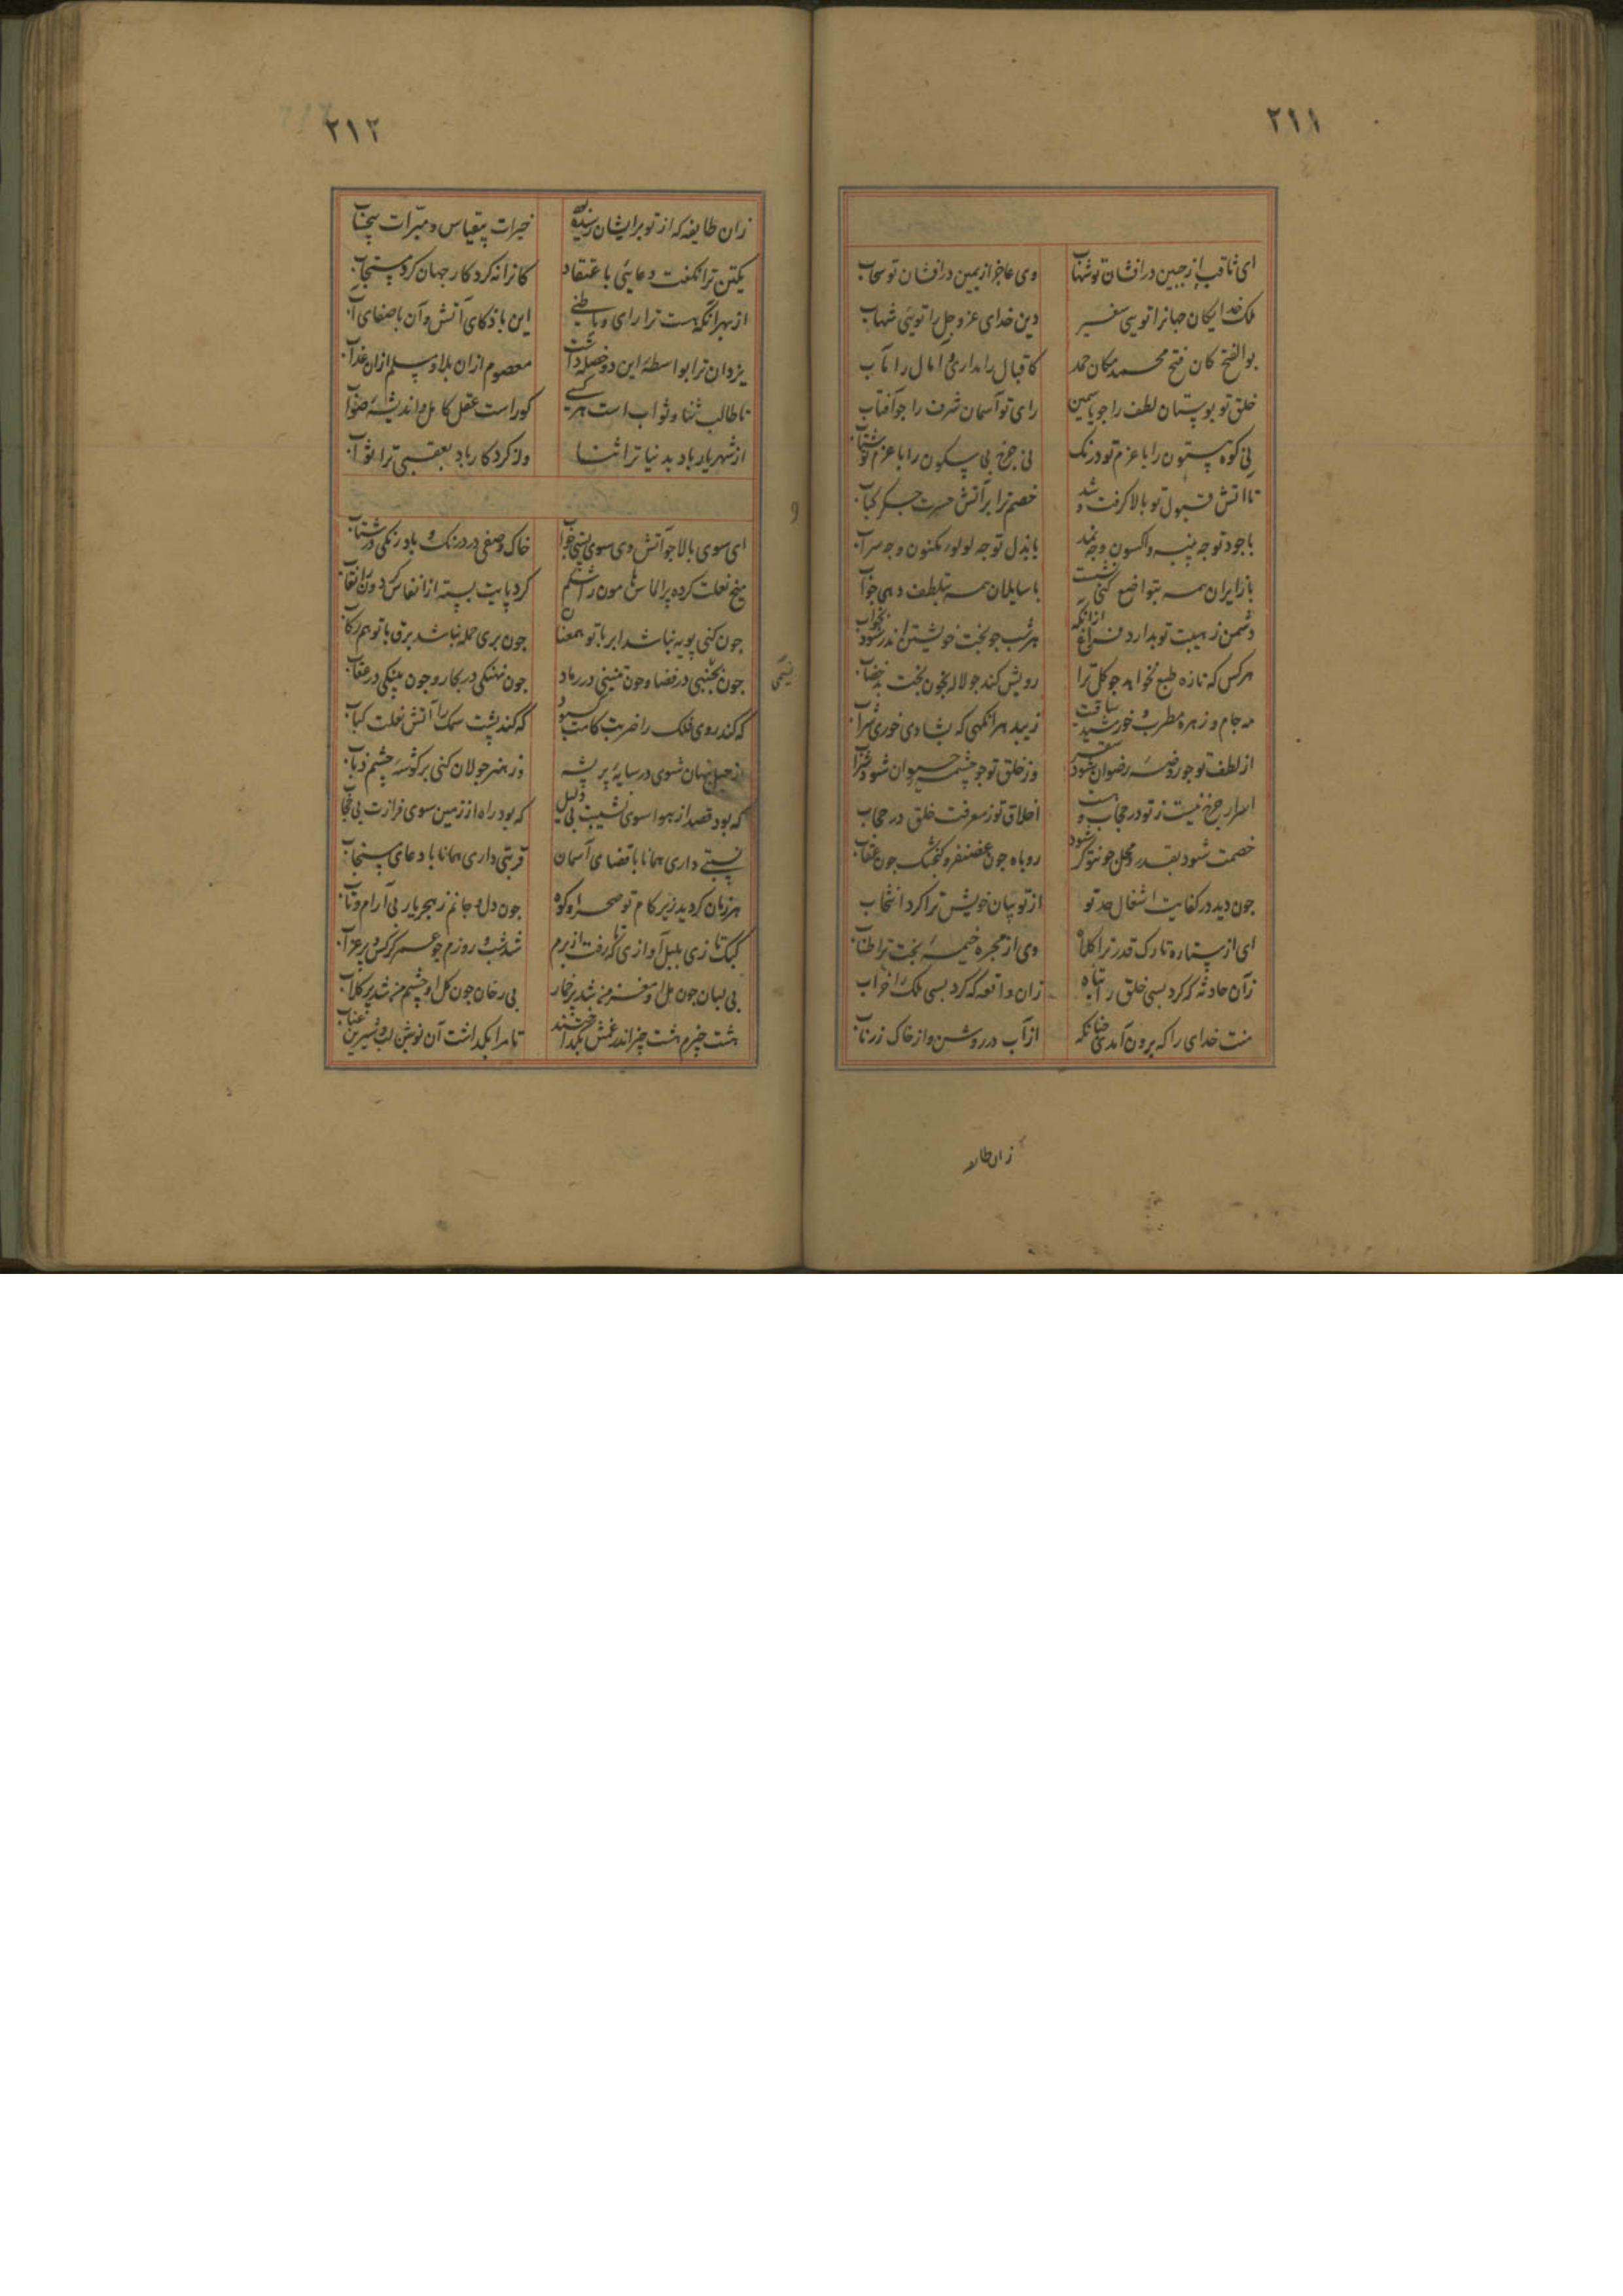 ۲۱۱
ای ثاقب از جبین درافشان تو شهاب وی عاجز از یمین درافشان تو سحاب
ملک خدایگان جهانرا تویی سفیر دین خدای عزوجل را تویی شهاب
بوالفتح کان فتح محمد مکان حمد کاقبال را مداری و آمال را مآب
خلق تو بوستان لطف را جو یاسمین رای تو آسمان شرف را جو آفتاب
نی کوه بیستون را با عزم تو درنک نی جرخ بی سکون را با عزم تو شتاب
تا اتش قبول تو بالا کرفت و شد خصم ترا بر آتش حسرت جکر کباب
با جود تو جه پنبه و اکسون و جه نمد با بذل تو جه لولو مکنون و جه سراب
با زایران همه بتواضع کنی نشست با سایلان همه بتلطف دهی جواب
دشمن ز هیبت تو ندارد فراغ ازانکه هر شب جو بخت خویشتن اندر شود بخواب
هرکس که تازه طبع نخواهد جو کل ترا رویش کند جو لاله بخون بخت بد خضاب
مه جام و زهره مطرب و خورشید ساقیت زیبد هر انکهی که بشادی خوری شراب
از لطف تو جو روضه رضوان شود سقر وز خلق تو جو چشمه حیوان شود شراب
اسرار جرخ نیست ز تو در حجاب و هست اخلاق تو ز معرفت خلق در حجاب
خصمت شود بقدر و محل جون تو کر شود روباه جون غضنفر و کنجشک جون عقاب
جون دید در کفایت اشغال حد تو از تو بیان خویش ترا کرد انتخاب
ای از ستاره تارک قدر ترا کلاه وی از مجره خیمه بخت ترا طناب
زان حادثه که کرد بسی خلق را تباه زان واقعه که کرد بسی ملک را خراب
منت خدای را که برون آمدی جنانکه از آب در روشن و از خاک زر ناب
زان طایفه
۲۱۲
زان طایفه که از تو برایشان رسیده بود خیرات بیقیاس و مبرات بیحساب
یکتن ترا نکفت دعایئی باعتقاد کانرا نه کردکار جهان کرد مستجاب
از بهر انکه هست ترا رای و باطنی این با ذکای آتش و آن با صفای آب
یزدان ترا بواسطهٔ این دو خصله داشت معصوم ازان بلا و مسلم ازان عذاب
تا طالب ثنا و ثواب است هر کسی کوراست عقل کامل و اندیشهٔ صواب
از شهریار باد بدنیا ترا ثنا وز کردکار باد بعقبی ترا ثواب
ای سوی بالا جو آتش وی سوی پستی جو آب خاک وصفی در درنک و باد رنکی در شتاب
میخ نعلت کرده پر الماس هامون را شکم کرد پایت بسته از انفاس کردون را نقاب
جون کنی پویه نباشد ابر با تو همعنان جون بری حمله نباشد برق با تو هم رکاب
جون بجنبی در فضا و جون تنینی در رماد جون نهنکی در بحار و جون پلنکی در عقاب
که کند روی فلک را ضربت کامت کبود که کند پشت سمک را آتش نعلت کباب
از حیل پنهان شوی در سایهٔ پر پشه وز هنر جولان کنی بر کوشهٔ چشم ذباب
که بود قصد از هوا سوی نشیبت بی دلیل که بود راه از زمین سوی فرازت بی حجاب
نسبتی داری همانا با قضای آسمان قربتی داری همانا با دعای مستجاب
هر زمان کردید زیر کام تو صحرا و کوه جون دل و جانم ز هجر یار بی آرام و تاب
کبک تازی بلبل آوازی که تا رفت از برم شد شب و روزم جو عمر کرکس و پر غراب
بی لبان جون مل او مغز من شد پر خمار بی رخان جون کل او چشم من شد پر کلاب
هشت چیزم هشت چیز اندر غمش بکداشتند تا مرا بکداشت آن نوشین لب و شیرین عتاب